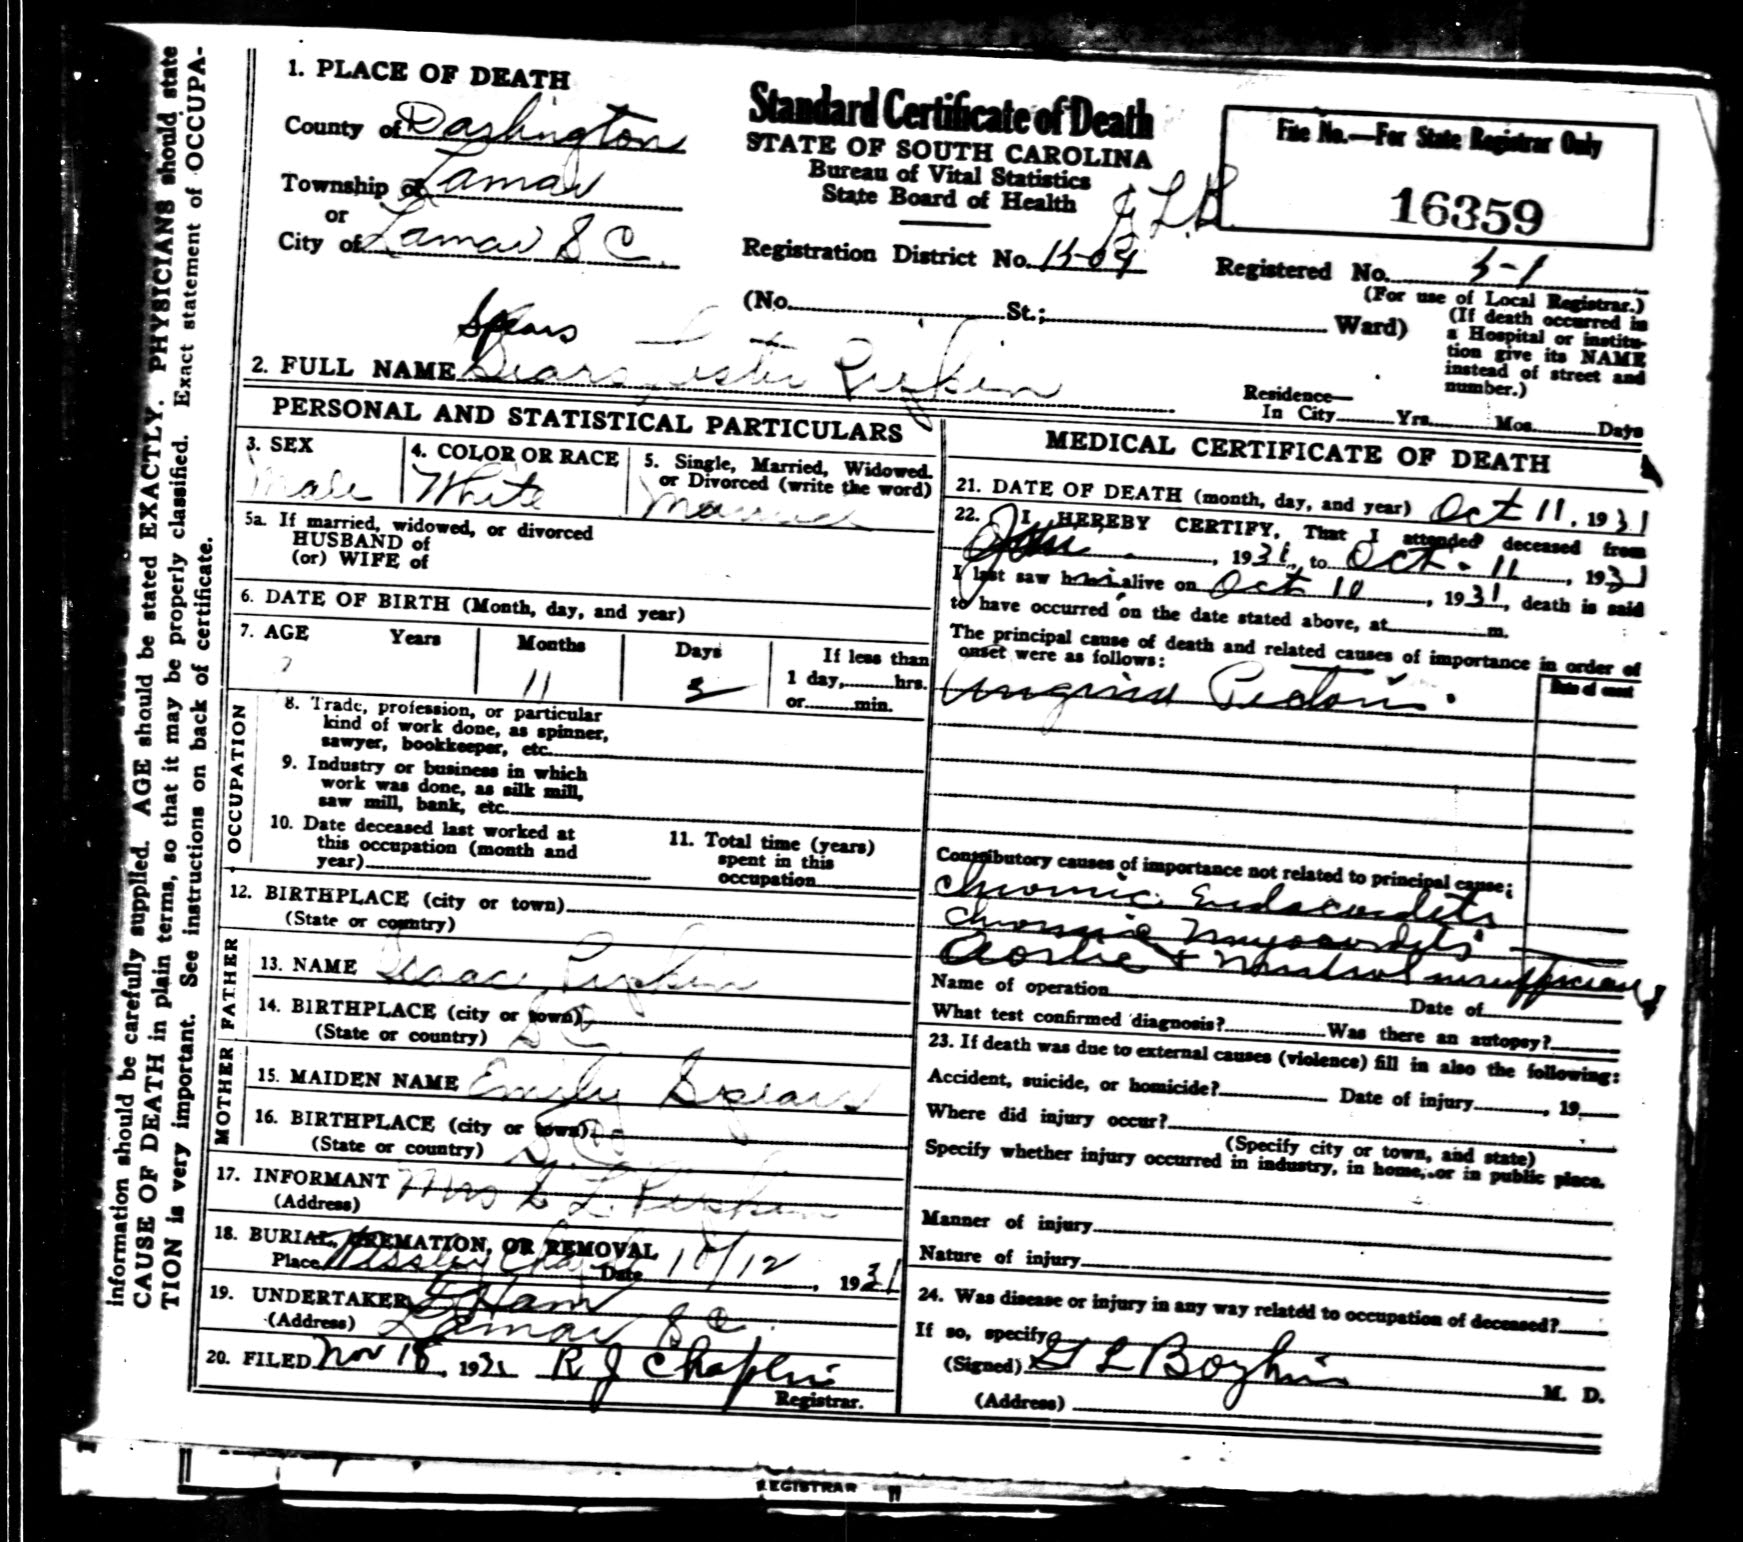 information should be carefully supplied. AGE should be stated EXACTLY. PHYSICIANS should state
CAUSE OF DEATH in plain terms, so that it may be properly classified. Exact statement of OCCUPA-
TION is very important. See instructions on back of certificate.
1. PLACE OF DEATH
County of Darlington
Township of Lamar
or
City of Lamar S C.
Standard Certificate of Death
STATE OF SOUTH CAROLINA
Bureau of Vital Statistics
State Board of Health
File No.—For State Registrar Only
16359
Registration District No. 15-04
Registered No. 5-1
(For use of Local Registrar.)
(No. St.; Ward)
(If death occurred in
a Hospital or institu-
tion give its NAME
instead of street and
number.)
Spears
2. FULL NAME Lester Pipkin
Residence—
In City Yrs. Mos. Days
PERSONAL AND STATISTICAL PARTICULARS
3. SEX
Male
4. COLOR OR RACE
White
5. Single, Married, Widowed.
or Divorced (write the word)
Married
5a. If married, widowed, or divorced
HUSBAND of
(or) WIFE of
6. DATE OF BIRTH (Month, day, and year)
7. AGE Years Months Days If less than
1 day, hrs.
or min.
11
8. Trade, profession, or particular
kind of work done, as spinner,
sawyer, bookkeeper, etc.
9. Industry or business in which
work was done, as silk mill,
saw mill, bank, etc.
10. Date deceased last worked at
this occupation (month and
year)
11. Total time (years)
spent in this
occupation
OCCUPATION
12. BIRTHPLACE (city or town)
(State or country)
FATHER
13. NAME Isaac Pipkin
14. BIRTHPLACE (city or town)
(State or country) S C
MOTHER
15. MAIDEN NAME Emily Spears
16. BIRTHPLACE (city or town)
(State or country) S. C.
17. INFORMANT Mrs L. Pipkin
(Address)
18. BURIAL, CREMATION, OR REMOVAL
Place Wessley Chapel Date 10/12, 1931
19. UNDERTAKER Ham
(Address) Lamar S C.
20. FILED Nov 18, 1931 R J Chaplin
Registrar.
MEDICAL CERTIFICATE OF DEATH
21. DATE OF DEATH (month, day, and year) Oct 11, 1931
22. I HEREBY CERTIFY, That I attended deceased from
, 1931, to Oct. 11, 1931
I last saw him alive on Oct 10, 1931, death is said
to have occurred on the date stated above, at m.
The principal cause of death and related causes of importance in order of
onset were as follows:
Date of onset
Angina Pectoris.
Contributory causes of importance not related to principal cause:
Chronic Endocarditis
Chronic Myocarditis
Aortic + Mitral insufficiency
Name of operation Date of
What test confirmed diagnosis? Was there an autopsy?
23. If death was due to external causes (violence) fill in also the following:
Accident, suicide, or homicide? Date of injury, 19
Where did injury occur?
(Specify city or town, and state)
Specify whether injury occurred in industry, in home, or in public place.
Manner of injury
Nature of injury
24. Was disease or injury in any way related to occupation of deceased?
If so, specify
(Signed) G L Boykin M. D.
(Address)
REGISTRAR